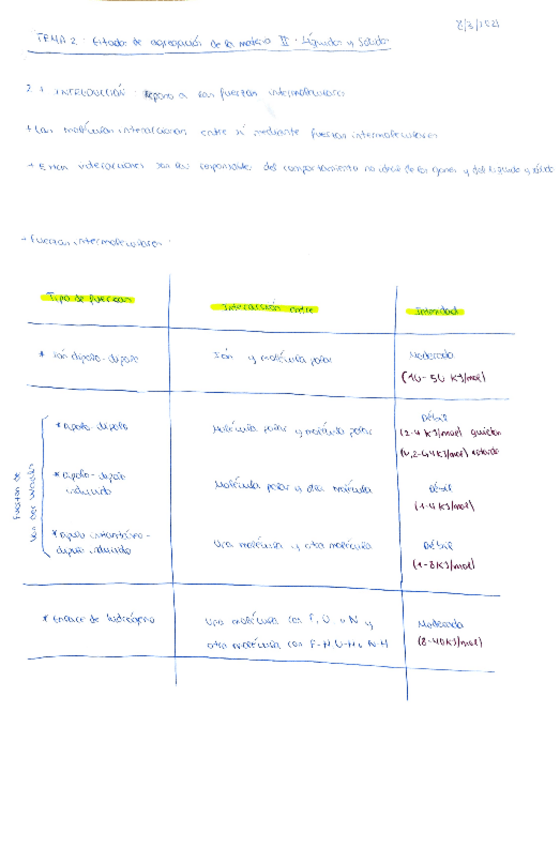 8/3/2021
TEMA 2: Estados de agregación de la materia II: Líquidos y Sólidos
2.1 INTRODUCCIÓN: Repaso a las fuerzas intermoleculares
+ Las moléculas interaccionan entre sí mediante fuerzas intermoleculares
+ Estas interacciones son las responsables del comportamiento no ideal de los gases y del líquido y sólido
→ Fuerzas intermoleculares:
Tipo de fuerzas Interacción entre Intensidad
* Ión dipolo-dipolo Ión y molécula polar Moderada
(10-50 KJ/mol)
* Dipolo-dipolo Molécula polar y molécula polar Débil
(2-4 KJ/mol)
* Dipolo-dipolo inducido Molécula polar y otra molécula Débil
(1-4 KJ/mol)
* Dipolo instantáneo-dipolo inducido Una molécula y otra molécula Débil
(1-8 KJ/mol)
Fuerzas de Van der Waals
* Enlace de hidrógeno Una molécula con F, O o N y Moderada
otra molécula con F-H O-H o N-H (8-40KJ/mol)